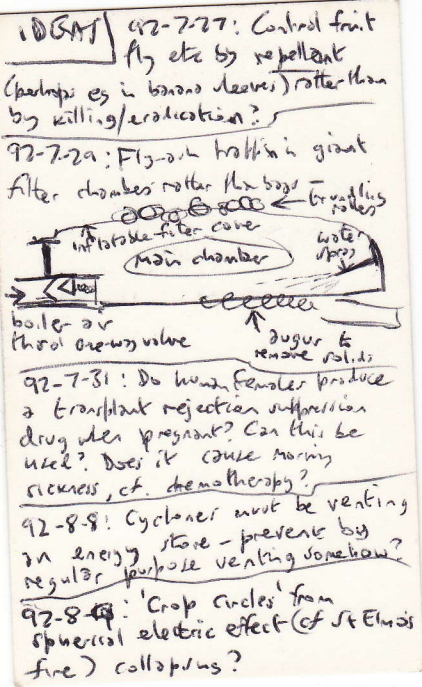 IDEAS
92-7-27: Control fruit
fly etc by repellant
(perhaps eg in banana sleeves) rather than
by killing/eradication?
92-7-29: Fly-ash trapping in giant
filter chambers rather than bags -
trundling
rollers
inflatable filter cover
water
spray
main chamber
boiler air
third one-way valve
augur to
remove solids
92-7-31: Do human females produce
a transplant rejection suppression
drug when pregnant? Can this be
used? Does it cause morning
sickness, cf. chemotherapy?
92-8-8: Cyclones must be venting
an energy store - prevent by
regular purpose venting somehow?
92-8-: 'Crop Circles' from
spherical electric effect (cf St Elmo's
fire) collapsing?